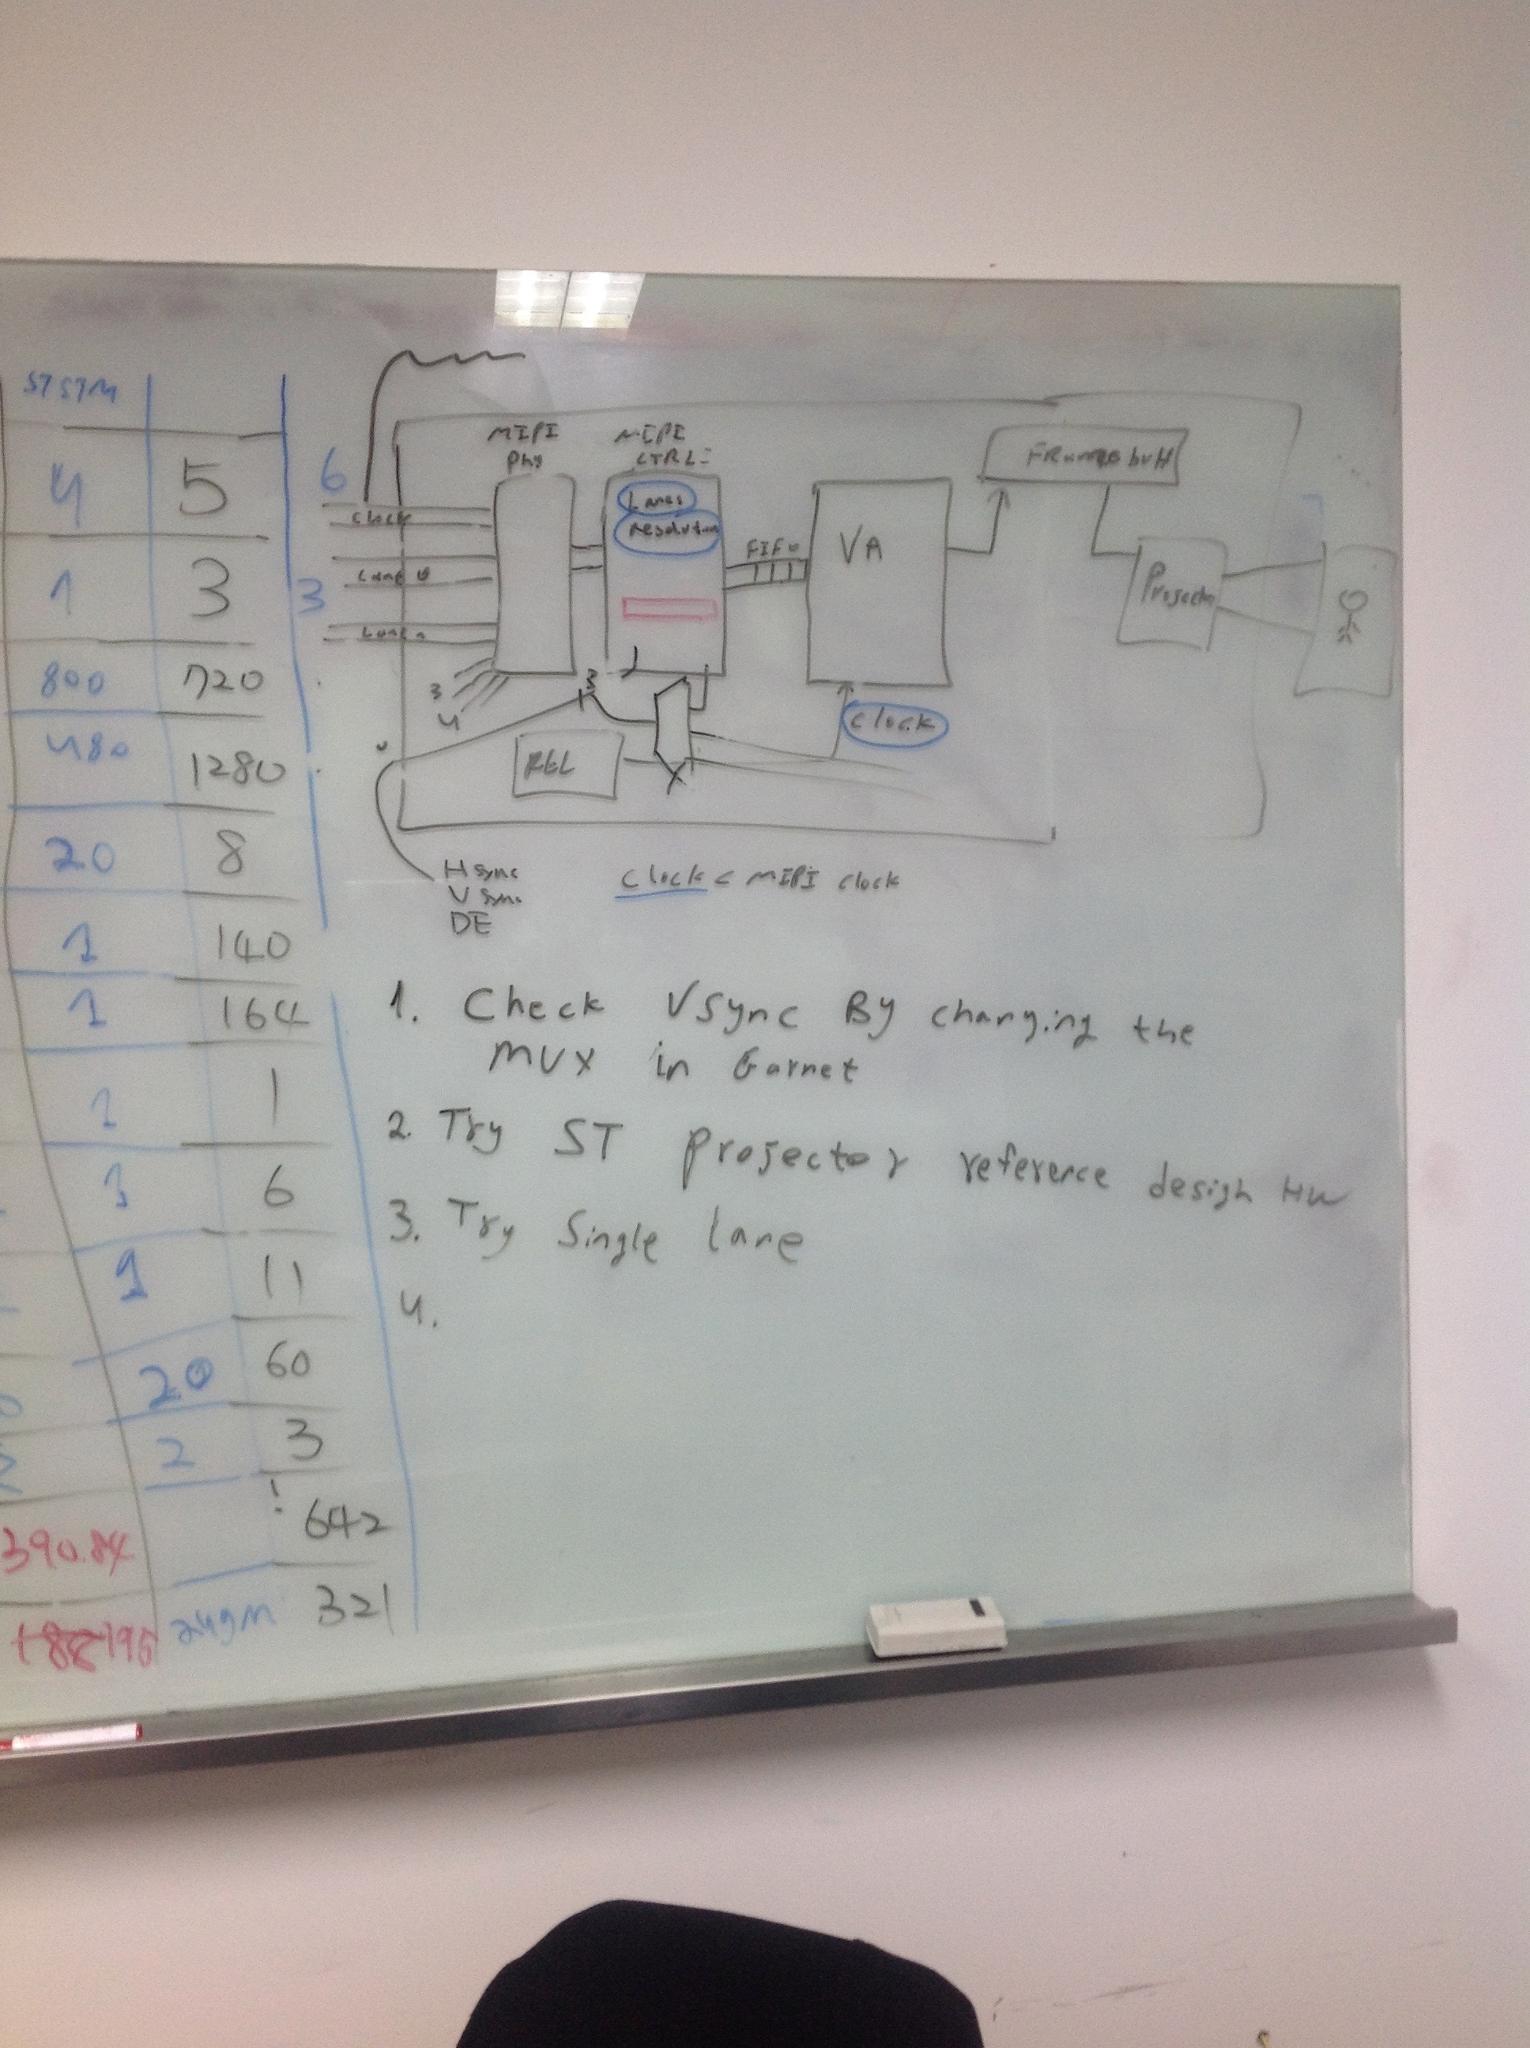 4 5
1 3
800 720
480 1280
20 8
1 140
1 164
1 1
6
11
20 60
2 3
642
390.84
321
6
3
MIPI
Phy
MIPI
CTRL
Clock
Lane 0
Lane n
3
4
Lanes
resolution
FIFO
VA
Frame buff
Projector
3
REL
Clock
H sync
V sync
DE
Clock < MIPI clock
1. Check Vsync By changing the
MUX in Garnet
2. Try ST projector reference design HW
3. Try Single lane
4.